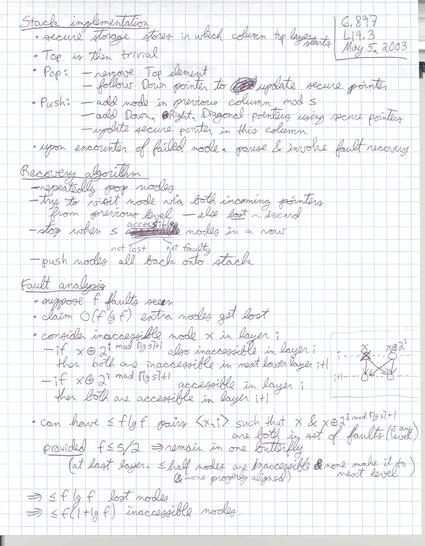 Stack implementation
6.897
L19.3
May 5, 2003
• secure storage stores in which column top layer starts
• Top is then trivial
• Pop: — remove Top element
— follow Down pointer to update secure pointer
• Push: — add node in previous column mod s
— add Down, Right, Diagonal pointers using secure pointers
— update secure pointer in this column
• upon encounter of failed node, pause & invoke fault recovery
Recovery algorithm
— repeatedly pop nodes
— try to visit node via both incoming pointers
from previous level — else lost ~ discard
— stop when s accessible nodes in a row
not lost not faulty
— push nodes all back onto stack
Fault analysis
• suppose f faults seen
• claim O(f lg f) extra nodes get lost
• consider inaccessible node x in layer i
— if x⊕2^{i mod ⌈lg s⌉+1} also inaccessible in layer i
then both are inaccessible in next lower layer i+1
— if x⊕2^{i mod ⌈lg s⌉+1} accessible in layer i
then both are accessible in layer i+1
x x⊕2^i
i
i+1
• can have ≤ f lg f pairs <x,i> such that x & x⊕2^{i mod ⌈lg s⌉+1}
are both in set of faults (in any level)
provided f ≤ s/2 ⇒ remain in one butterfly
(at last layer, ≤ half nodes are inaccessible & none make it to next level)
(& none properly aligned)
⇒ ≤ f lg f lost nodes
⇒ ≤ f(1+lg f) inaccessible nodes.